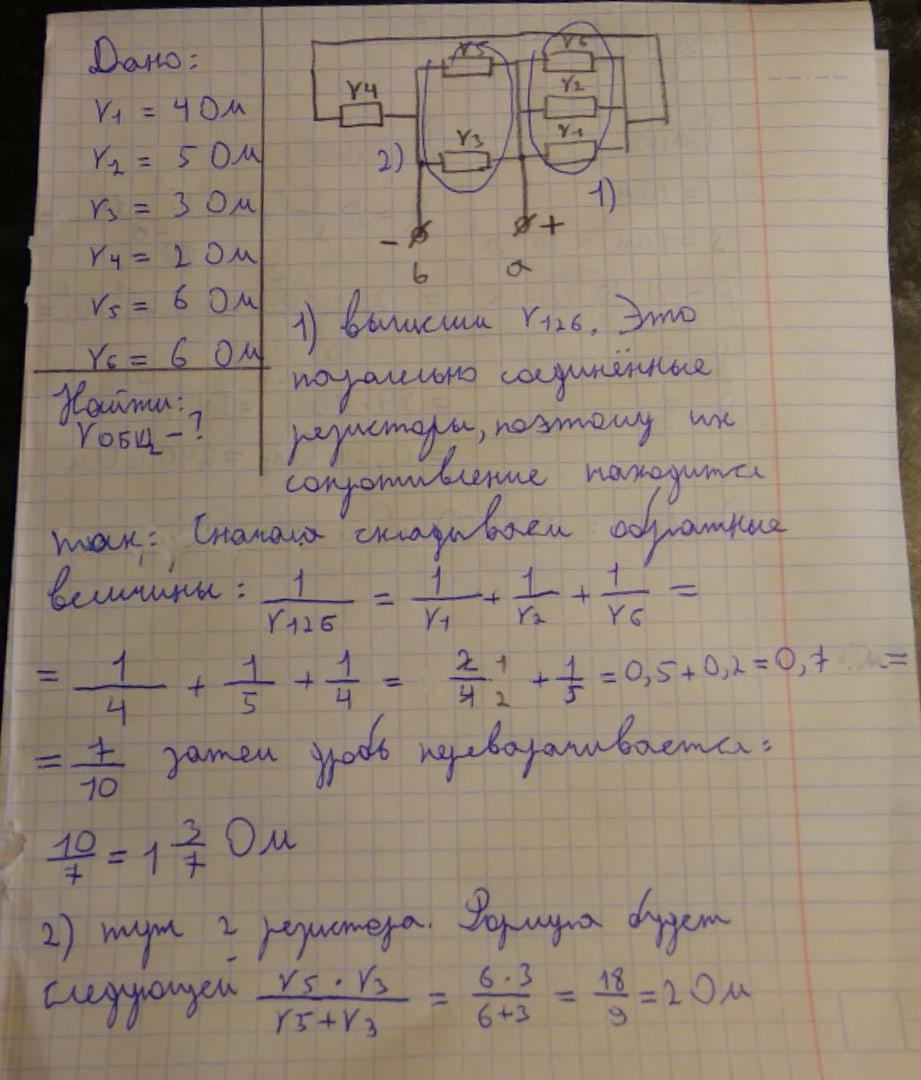 Дано:
r1 = 4 Ом
r2 = 5 Ом
r3 = 3 Ом
r4 = 2 Ом
r5 = 6 Ом
r6 = 6 Ом
Найти:
rОБЩ - ?
r5 r6
r4 r2
2) r3 r1
1)
- +
b a
1) вычислим r126. Это
паралельно соединённые
резисторы, поэтому их
сопротивление находится
так: Сначала складываем обратные
величины: 1/r126 = 1/r1 + 1/r2 + 1/r6 =
= 1/4 + 1/5 + 1/4 = 2/4 1/2 + 1/5 = 0,5 + 0,2 = 0,7 =
= 7/10 затем дробь переворачивается:
10/7 = 1 3/7 Ом
2) тут 2 резистора. Формула будет
следующей r5 · r3 / r5 + r3 = 6 · 3 / 6 + 3 = 18/9 = 2 Ом